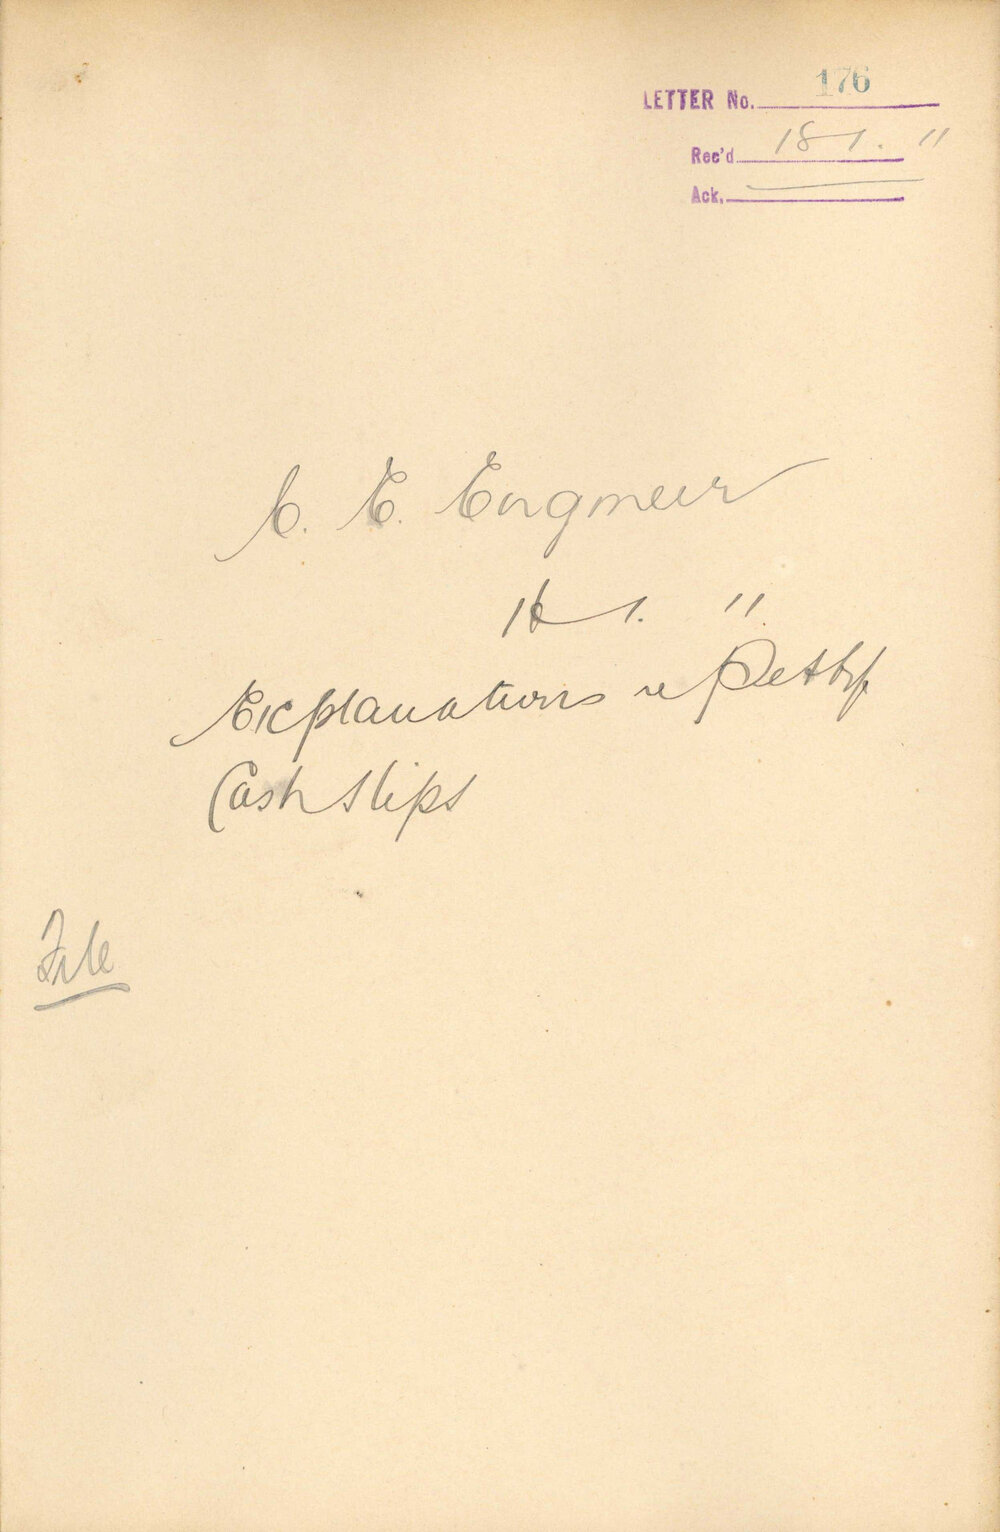 LETTER No. 176
Rec'd 18 1. 11
Ack.
C. E. Engineer
16 1. 11.
Explanations re Petty
Cash Slips
File